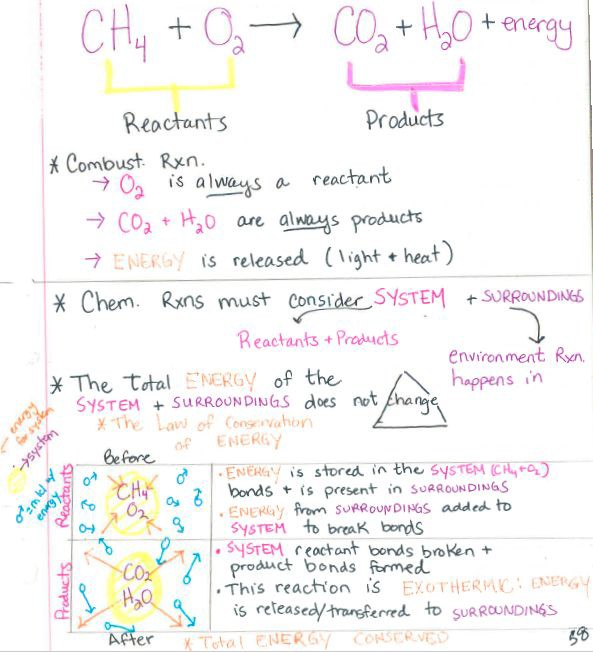 CH₄ + O₂ → CO₂ + H₂O + energy
Reactants Products
* Combust. Rxn.
→ O₂ is always a reactant
→ CO₂ + H₂O are always products
→ ENERGY is released (light + heat)
* Chem. Rxns must consider SYSTEM + SURROUNDINGS
Reactants + Products
environment Rxn.
happens in
* The Total ENERGY of the
SYSTEM + SURROUNDINGS does not change
* The Law of Conservation
of ENERGY
← energy
for system
→ system
= mlcl w/
energy
Before
Reactants
CH₄
O₂
• ENERGY is stored in the SYSTEM (CH₄+O₂)
bonds + is present in SURROUNDINGS
• ENERGY from SURROUNDINGS added to
SYSTEM to break bonds
Products
CO₂
H₂O
• SYSTEM reactant bonds broken +
product bonds formed
• This reaction is EXOTHERMIC: ENERGY
is released/transferred to SURROUNDINGS
After
* Total ENERGY CONSERVED
38